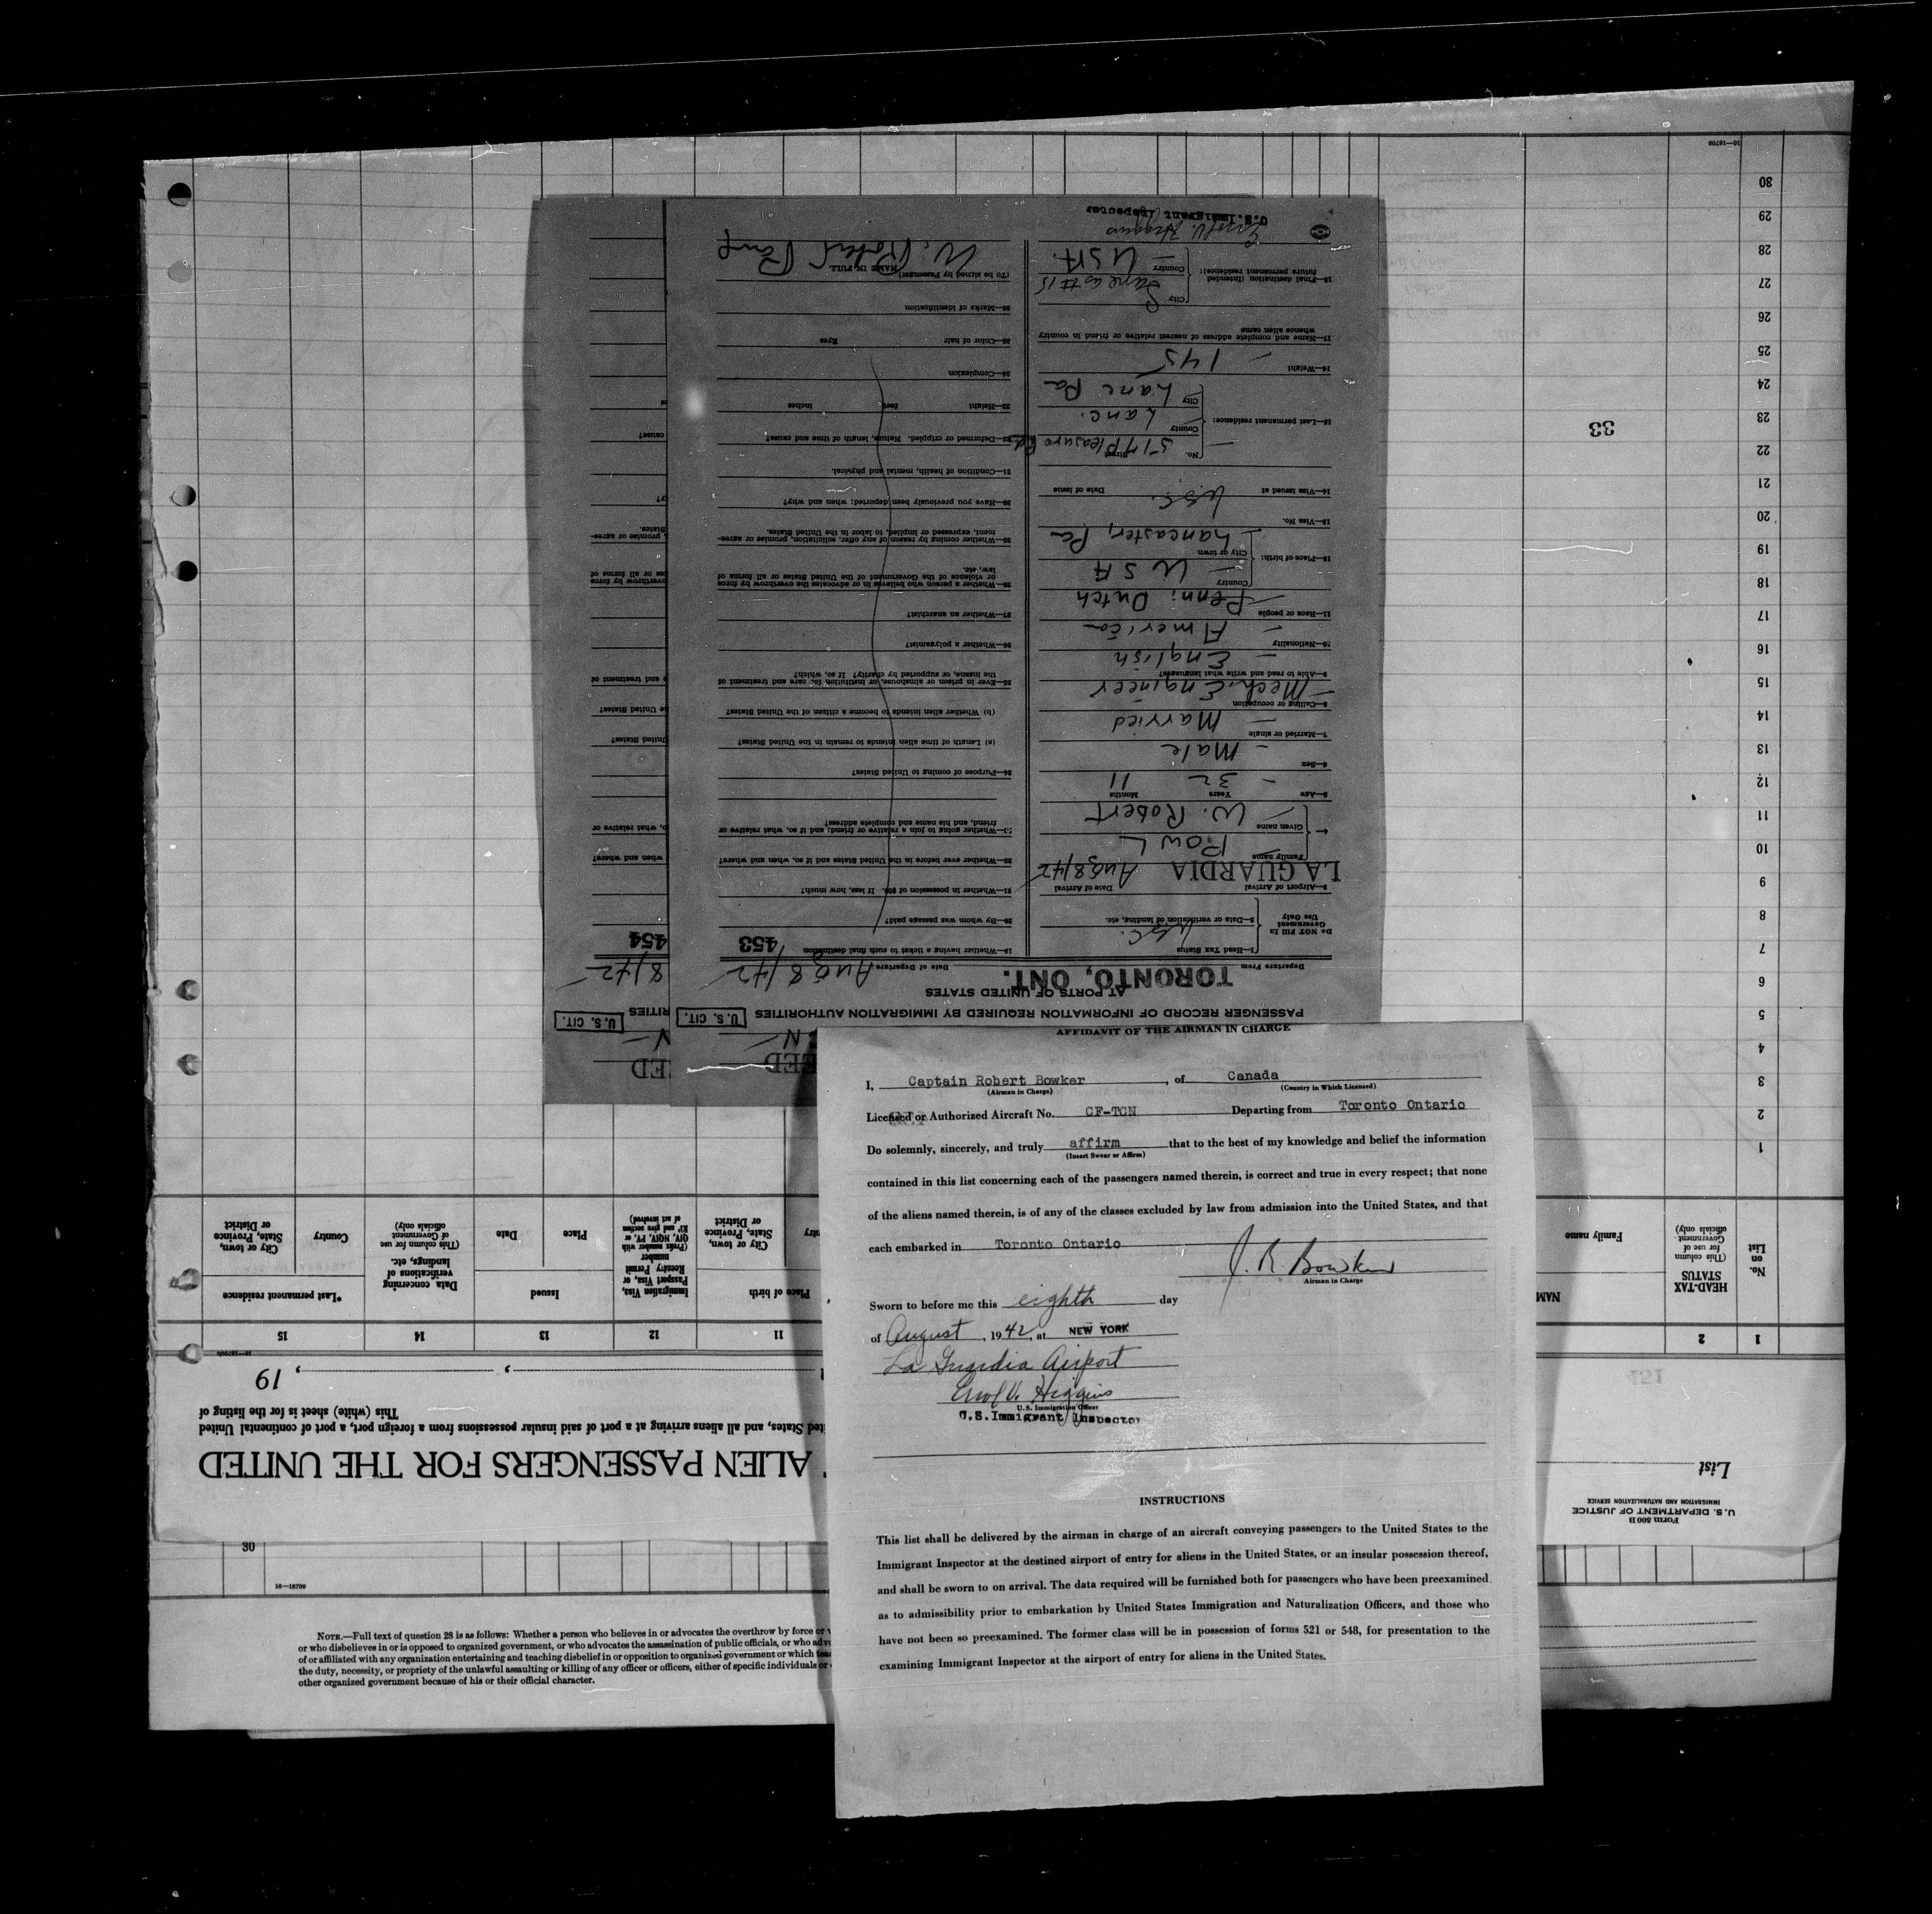 AFFIDAVIT OF THE AIRMAN IN CHARGE
I, Captain Robert Bowker, of Canada
(Airman in Charge) (Country in Which Licensed)
Licensed or Authorized Aircraft No. CF-TCN Departing from Toronto Ontario
Do solemnly, sincerely, and truly affirm that to the best of my knowledge and belief the information
(Insert Swear or Affirm)
contained in this list concerning each of the passengers named therein, is correct and true in every respect; that none
of the aliens named therein, is of any of the classes excluded by law from admission into the United States, and that
each embarked in Toronto Ontario
J. R. Bowker
Airman in Charge
Sworn to before me this eighth day
of August, 1942, at NEW YORK
La Guardia Airport
Errol V. Higgins
U.S. Immigration Officer
U.S. Immigrant Inspector
INSTRUCTIONS
This list shall be delivered by the airman in charge of an aircraft conveying passengers to the United States to the
Immigrant Inspector at the destined airport of entry for aliens in the United States, or an insular possession thereof,
and shall be sworn to on arrival. The data required will be furnished both for passengers who have been preexamined
as to admissibility prior to embarkation by United States Immigration and Naturalization Officers, and those who
have not been so preexamined. The former class will be in possession of forms 521 or 548, for presentation to the
examining Immigrant Inspector at the airport of entry for aliens in the United States.
PASSENGER RECORD OF INFORMATION REQUIRED BY IMMIGRATION AUTHORITIES
U. S. CIT.
AT PORTS OF UNITED STATES
TORONTO, ONT.
Departure From Date of Departure Aug 8/42
Do NOT Fill In
Government
Use Only
1—Head Tax Status U.S.C.
2—Data or verification of landing, etc.
3—Airport of Arrival Date of Arrival
LA GUARDIA Aug 8/42
4— Family name
Given name W. Robert
5—Age Years 32 Months 11
6—Sex Male
7—Married or single Married
8—Calling or occupation Mech. Engineer
9—Able to read and write what languages? English
10—Nationality America
11—Race or people Penn: Dutch
12—Place of birth: Country USA
City or town Lancaster, Pa
13—Visa No.
14—Visa issued at U.S.C. Date of issue
15—Last permanent residence: No. 517 Street Pleasure Rd
County Lanc.
City Lanc Pa
16—Weight 145
17—Name and complete address of nearest relative or friend in country
whence alien came
18—Final destination (intended
future permanent residence):
City Same as #15
Country USA
Errol V. Higgins
U.S. Immigrant Inspector
19—Whether having a ticket to such final destination 453
20—By whom was passage paid?
21—Whether in possession of $50. If less, how much?
22—Whether ever before in the United States and if so, when and where?
23—Whether going to join a relative or friend; and if so, what relative or
friend, and his name and complete address?
24—Purpose of coming to United States?
(a) Length of time alien intends to remain in the United States?
(b) Whether alien intends to become a citizen of the United States?
25—Ever in prison or almshouse, or institution for care and treatment of
the insane, or supported by charity? If so, which?
26—Whether a polygamist?
27—Whether an anarchist?
28—Whether a person who believes in or advocates the overthrow by force
or violence of the Government of the United States or all forms of
law, etc.
29—Whether coming by reason of any offer, solicitation, promise or agree-
ment, expressed or implied, to labor in the United States.
30—Have you previously been deported; when and why?
31—Condition of health, mental and physical.
32—Deformed or crippled. Nature, length of time and cause?
33—Height feet inches
34—Complexion
35—Color of hair Eyes
36—Marks of identification
(To be signed by Passenger) NAME IN FULL
W. Robert
454
8/42
U. S. CIT.
RITIES
Form 500 B
U. S. DEPARTMENT OF JUSTICE
IMMIGRATION AND NATURALIZATION SERVICE
List
ALIEN PASSENGERS FOR THE UNITED
ited States, and all aliens arriving at a port of said insular possessions from a foreign port, a port of continental United
This (white) sheet is for the listing of
, , 19
16—18700b
1 2 11 12 13 14 15
No.
on
List
HEAD-TAX
STATUS
(This column
for use of
Government
officials only)
NAM
Family name
Place of birth
City or town,
State, Province
or District
Immigration Visa,
Passport Visa, or
Reentry Permit
number
(Prefix number with
QIV, NQIV, PV, or
RP and give section
of act involved)
Issued
Place
Date
Data concerning
verifications of
landings, etc.
(This column for use
of Government
officials only)
*Last permanent residence
Country
City or town,
State, Province
or District
1
2
3
4
5
6
7
8
9
10
11
12
13
14
15
16
17
18
19
20
21
22
23
24
25
26
27
28
29
30
33
16—18700
30
16—18700
NOTE.—Full text of question 28 is as follows: Whether a person who believes in or advocates the overthrow by force or
or who disbelieves in or is opposed to organized government, or who advocates the assassination of public officials, or who adv
of or affiliated with any organization entertaining and teaching disbelief in or opposition to organized government or which
the duty, necessity, or propriety of the unlawful assaulting or killing of any officer or officers, either of specific individuals or
other organized government because of his or their official character.